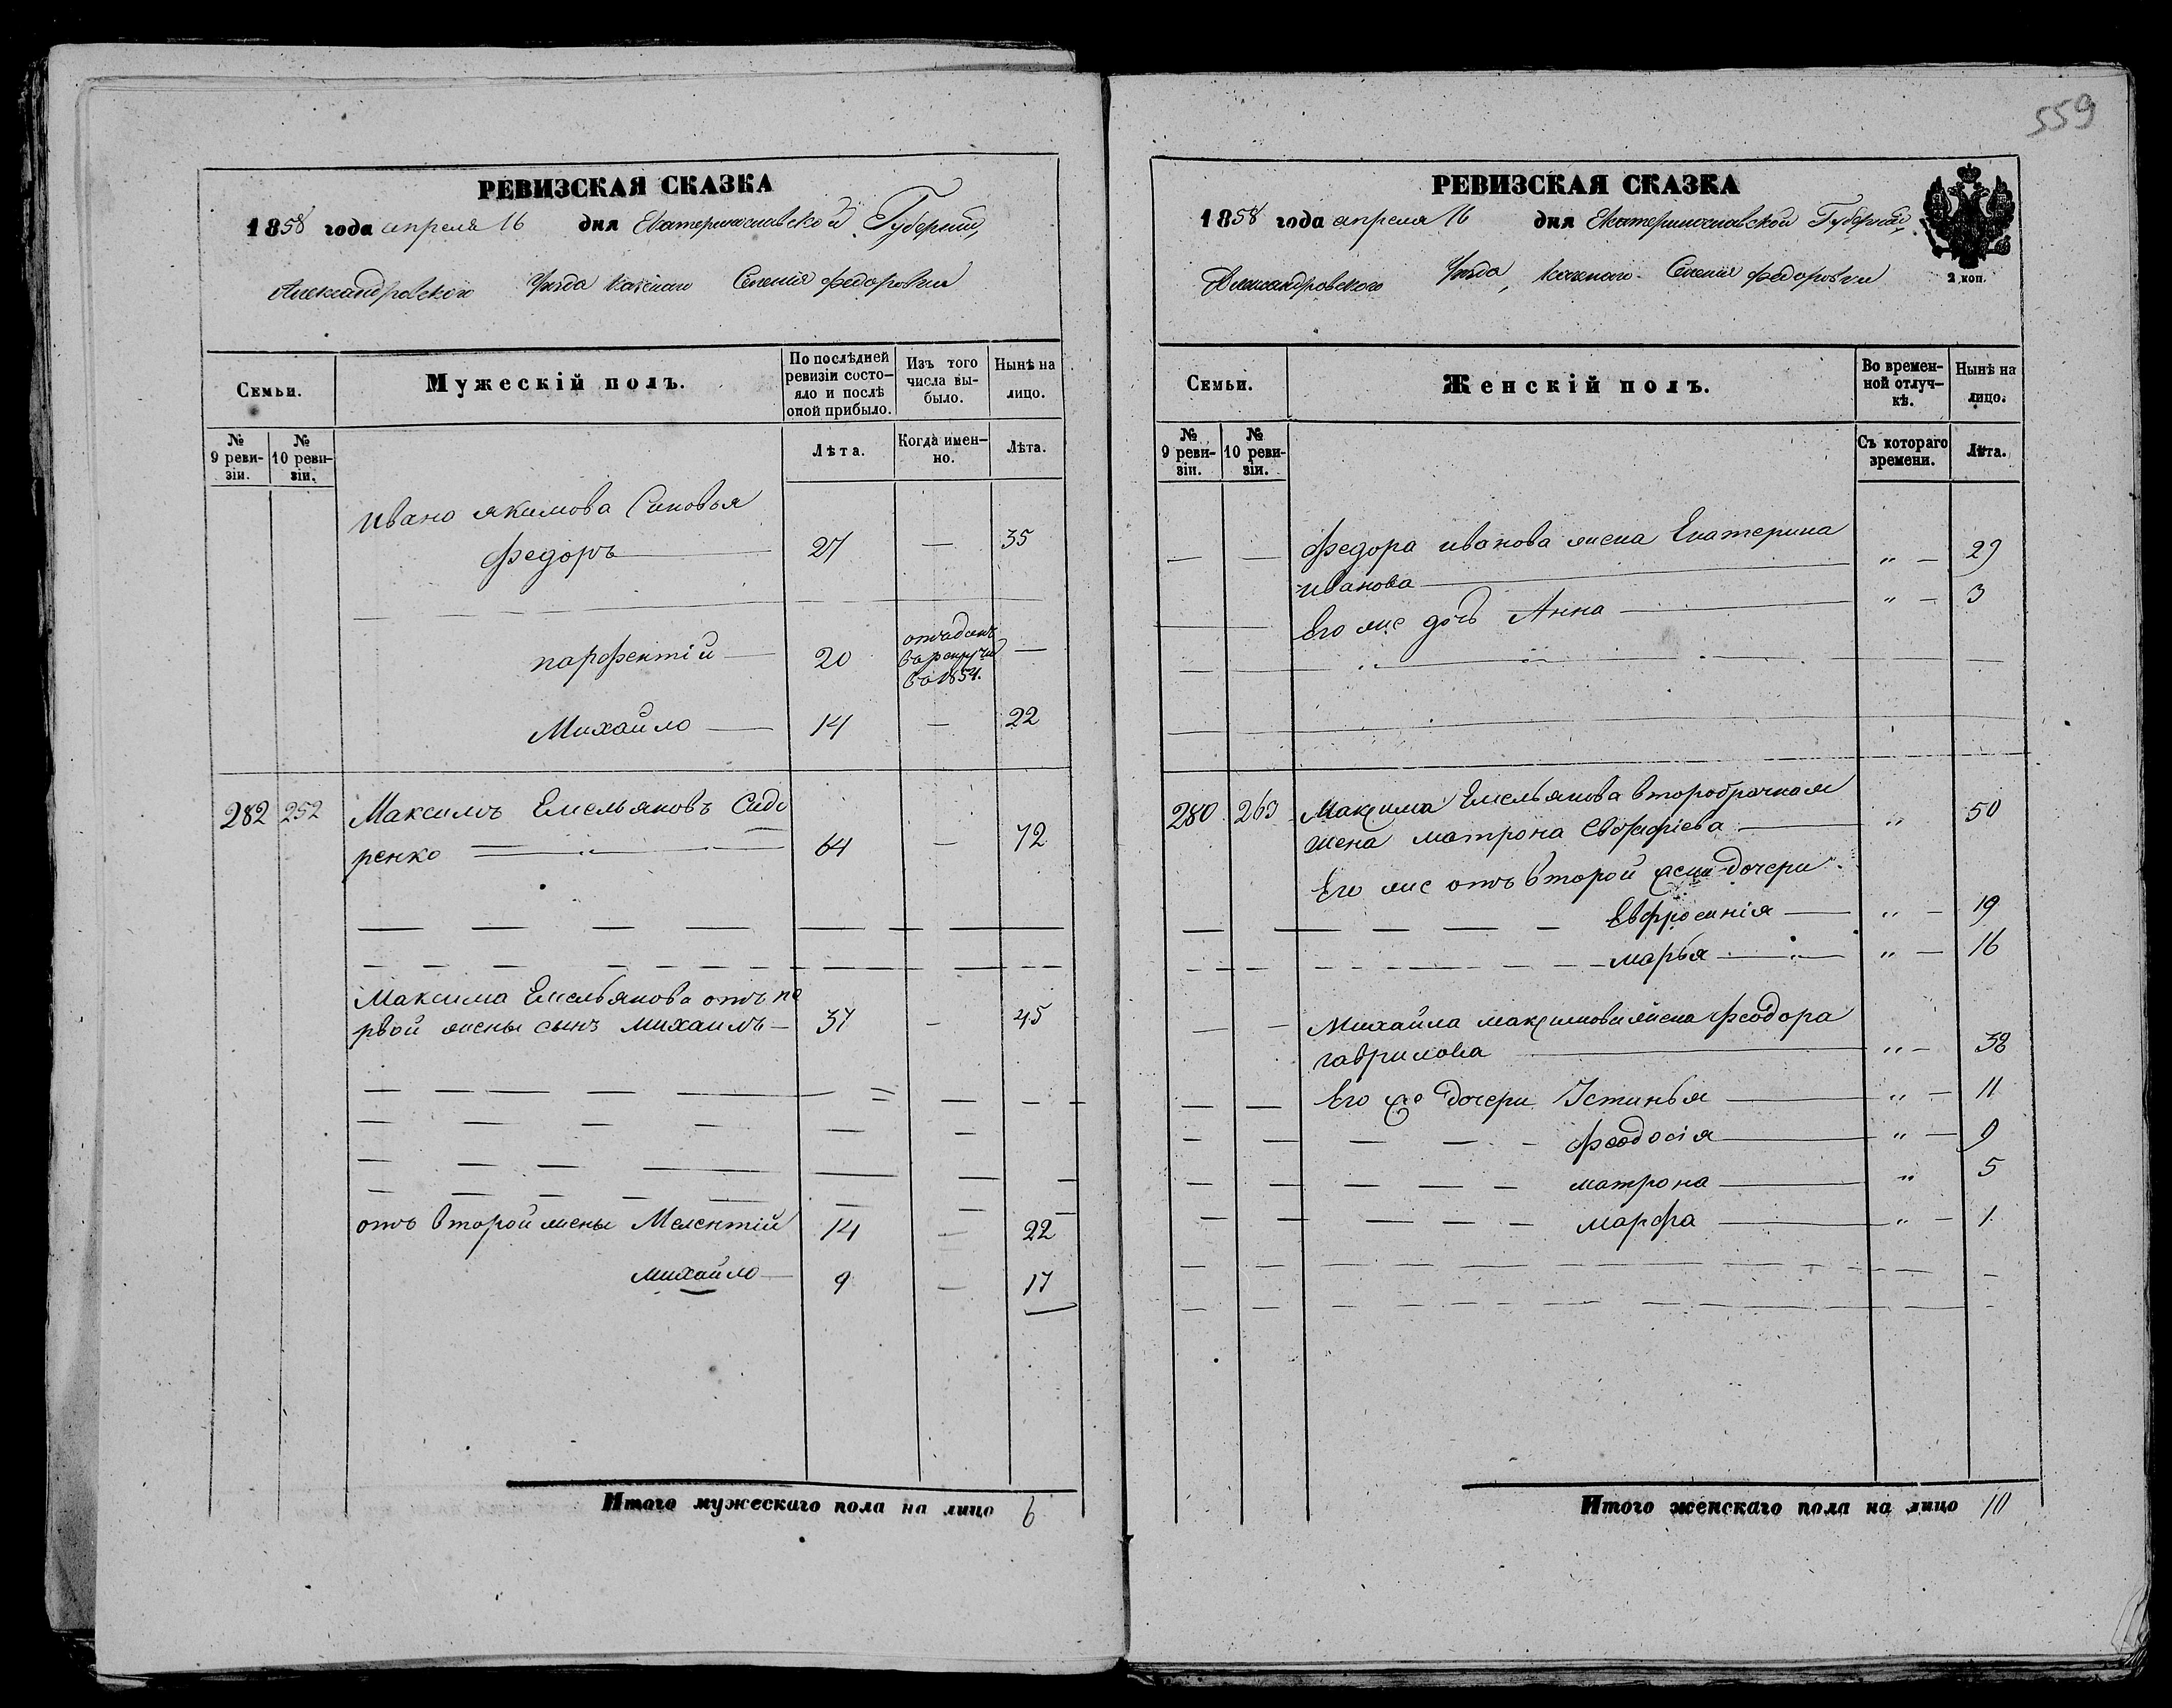 559
РЕВИЗСКАЯ СКАЗКА
1858 года апреля 16 дня Екатеринославской Губернии,
Александровского Уезда казенаго Селения Федоровки
Семьи.
Мужескій полъ.
По послѣдней ревизіи состо-
яло и послѣ
оной прибыло.
Изъ того
числа вы-
было.
Нынѣ на
лицо.
№
9 реви-
зіи.
№
10 реви-
зіи.
Лѣта.
Когда имен-
но.
Лѣта.
Ивано якимова Синовья
Федоръ 27 — 35
парфентій 20 отчаданъ
в рекруты
в 1854. —
Михайло 14 — 22
282 252 Максимъ Емельяновъ Сидо
ренко 64 — 72
Максима Емельянова отъ пе
рвой жены сынъ михаилъ 37 — 45
отъ второй жены Мелентій 14 — 22
михайло 9 — 17
Итого мужескаго пола на лицо 6
РЕВИЗСКАЯ СКАЗКА
1858 года апреля 16 дня Екатеринославской Губернии,
Александровского Уезда, казенаго Селения Федоровки
2 коп.
Семьи.
Женскій полъ.
Во времен-
ной отлуч-
кѣ.
Нынѣ на
лицо.
№
9 реви-
зіи.
№
10 реви-
зіи.
Съ котораго
времени.
Лѣта.
Федора иванова жена Екатерина
иванова „ — 29
Его же дочь Анна „ — 3
280 263 Максима Емельянова второбрачная
жена матрона „ 50
Его же отъ второй жены дочери
Евфросинія „ — 19
марья „ — 16
Михайла максимова жена Феодора
гаврилова „ — 38
Его же дочери Устинья „ — 11
феодосія „ — 9
матрона „ 5
марфа „ — 1
Итого женскаго пола на лицо 10